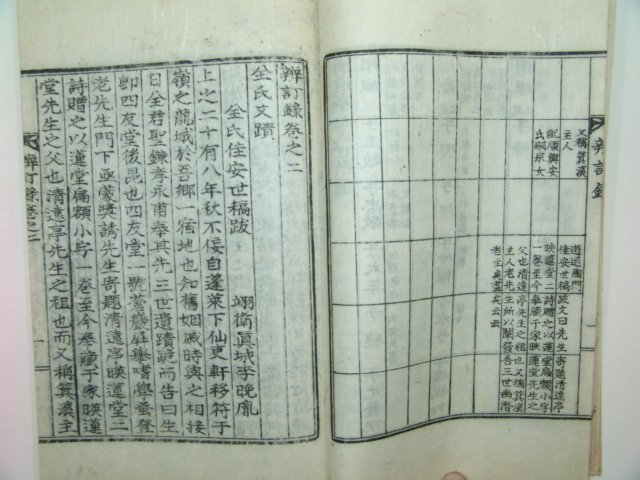 辨訂錄
又稱箕溪
主人
配順興安
氏嗣宗女
遊退陶門
佳安世稿跋文曰先生寄題清遠亭
映蓮堂二詩贈之以蓮堂扁額小字
一卷至今奉藏于家映蓮堂先生之
父也清遠亭先生之祖也又稱箕溪
主人老先生所以闡發吾三世幽潛
者至矣盡矣云云
辨訂錄卷之二
全氏文蹟
全氏佳安世稿跋
翊衛眞城李晚胤
上之二十有八年秋不佞自蓬萊下仙更軒移符于
嶺之龍城於吾鄉一宿地也知舊姻戚時與之相接
日全君聖鍊孝永甫奉其先三世遺蹟詑而告曰生
卽四友堂後昆也四友堂一號蒼巖庭擧嗜學蚤登
老先生門下亟蒙奬誘先生寄題清遠亭映蓮堂二
詩贈之以蓮堂扁額小字一卷至今奉藏于家映蓮
堂先生之父也清遠亭先生之祖也而又稱箕溪主
辨訂錄卷之二